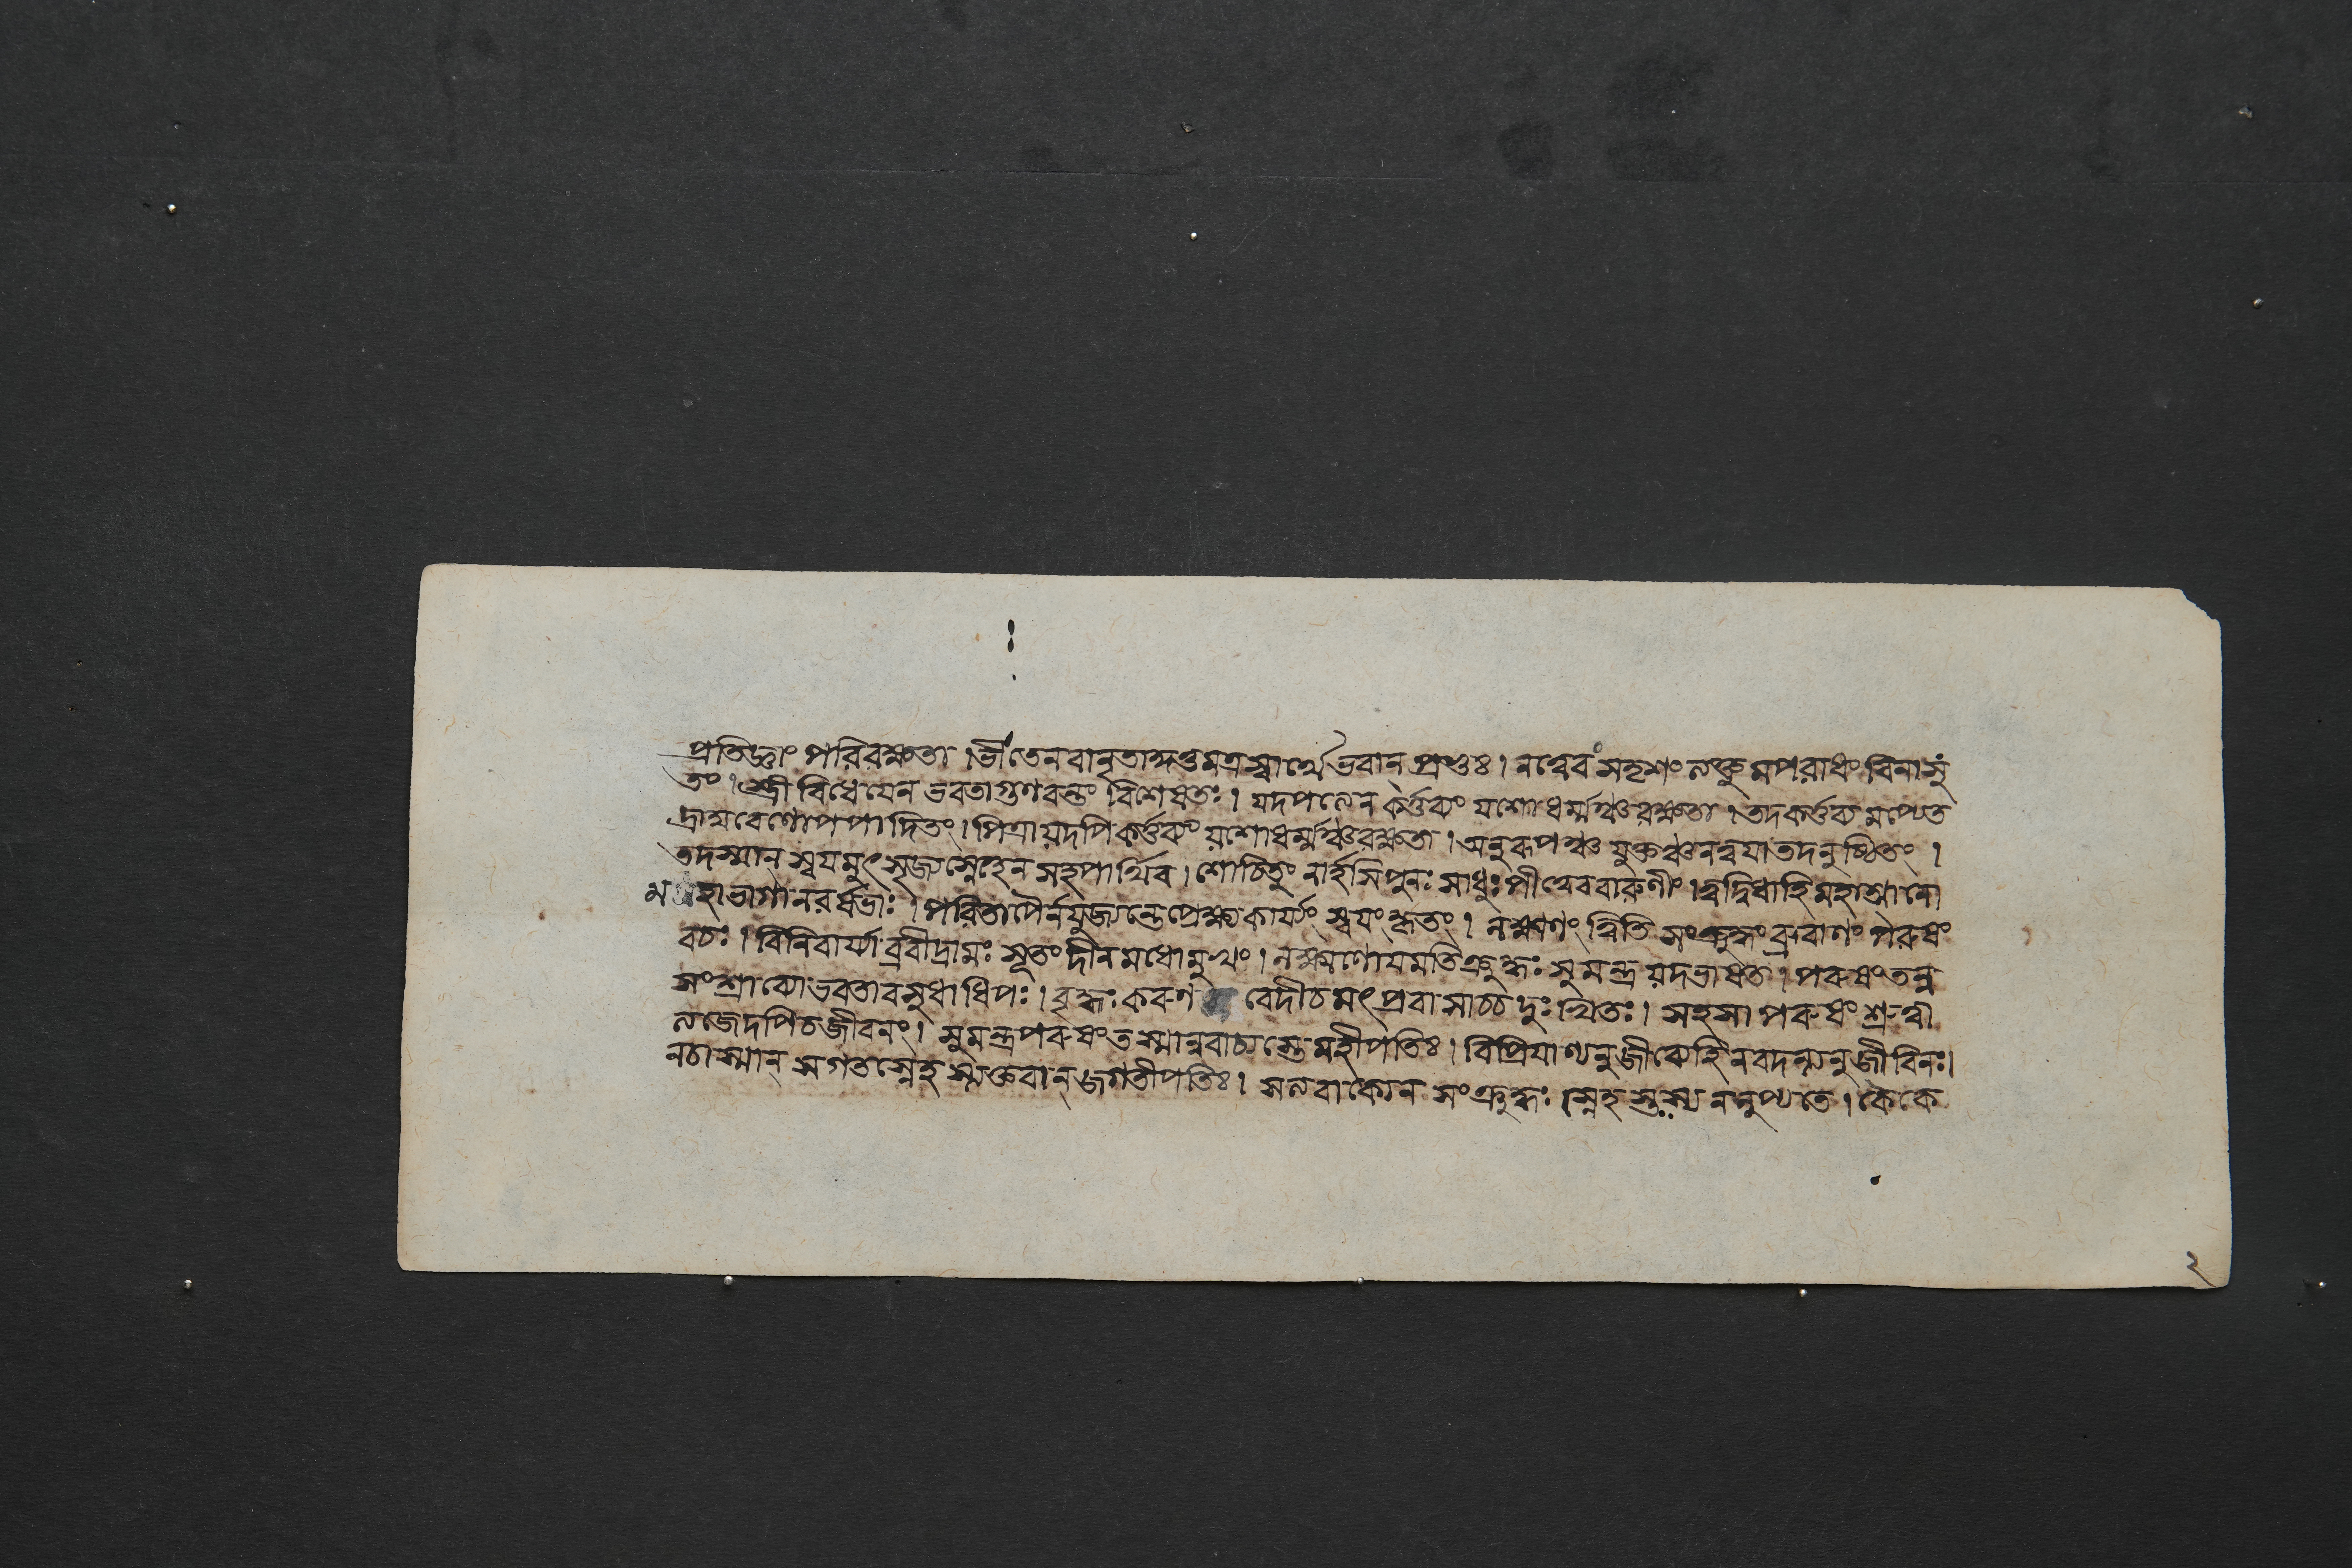 প্রতিজ্ঞাং পরিরক্ষতা । ভীতেন বানৃতাদ্গন্তুমত্র স্বার্থে ভবান্ প্রভুঃ । নত্বেবং সদৃশং লব্ধুমপরাধং বিনাসুং
তং । স্ত্রীবিধেযেন ভবতা গুণবন্তং বিশেষতঃ । যদপলেন কর্ত্তব্যং যশোধর্ম্মঞ্চ রক্ষতা । তদকর্ত্তব্যমপ্যেত
দ্রামবেণোপপাদিতং । পিত্রায়দপি কর্ত্তব্যং য়শোধর্ম্মঞ্চ রক্ষতা । অনুরূপঞ্চ যুক্তঞ্চ নত্বযা তদনুষ্ঠিতং ।
তদস্মান্ স্বযমুৎসৃজ্য স্নেহেন সহ পার্থিব । শোচিতুং নার্হসি পুনঃ সাধুঃ পীত্বেব বারুণীং । ত্বদ্বিধা হি মহাত্মানো
মহাভাগা নরর্ষভাঃ । পরিতাপৈর্ন যুজ্যন্তে প্রেক্ষ্য কার্য্যং স্বযং কৃতং । লক্ষ্মণং ত্বিতি সংক্রুদ্ধং ব্রুবাণং পরুষং
বচঃ । বিনিবার্য্যাব্রবীদ্রামঃ সূতং দীনমধোমুখং । লক্ষ্মণোযমতিক্রুদ্ধঃ সুমন্ত্র য়দভাষত । পরুষং তন্ন
সংশ্রাব্যো ভবতা বসুধাধিপঃ । বৃদ্ধঃ করুণ বেদী চ মৎপ্রবাসাচ্চ দুঃখিতঃ । সহসা পরুষং শ্রুত্বা
ত্যজেদপি চ জীবনং । সুমন্ত্র পরুষং তস্মান্নবাচ্যস্তে মহীপতিঃ । বিপ্রিযাণ্যনুজীব্যে হি নবদন্ত্যনুজীবিনঃ ।
নচাস্মান্ সগতস্নেহস্ত্যক্তবান্ জগতীপতিঃ । সলবাক্যেন সংক্রুদ্ধঃ স্নেহস্তস্য ননুপ্যতে । কৈকে
২